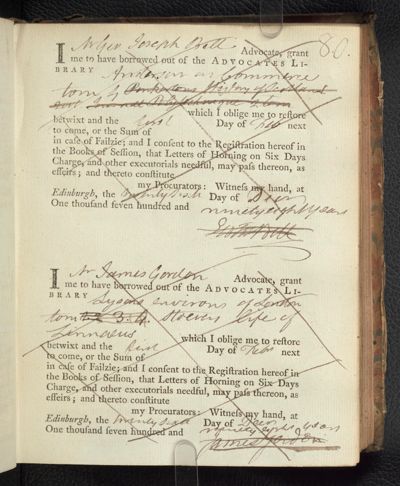 80.
I Joseph Bell Advocate, grant
me to have borrowed out of the ADVOCATES LI-
BRARY Anderson on Commerce
tom
which I oblige me to restore
betwixt and the first Day of Feb next
to come, or the Sum of
in case of Failzie; and I consent to the Registration hereof in
the Books of Session, that Letters of Horning on Six Days
Charge, and other executorials needful, may pass thereon, as
effeirs; and thereto constitute
my Procurators: Witness my hand, at
Edinburgh, the twenty sixth Day of Decr
One thousand seven hundred and ninety eight years
I Mr James Gordon Advocate, grant
me to have borrowed out of the ADVOCATES LI-
BRARY Lysons environs of London
tom 3. 4. Stoevers life of
Linnaeus which I oblige me to restore
betwixt and the first Day of Feb next
to come, or the Sum of
in case of Failzie; and I consent to the Registration hereof in
the Books of Session, that Letters of Horning on Six Days
Charge, and other executorials needful, may pass thereon, as
effeirs; and thereto constitute
my Procurators: Witness my hand, at
Edinburgh, the twenty sixth Day of Decr
One thousand seven hundred and ninety eight years
James Gordon